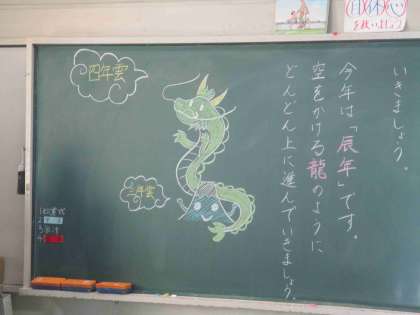 いきましょう。
今年は「辰年」です。
空をかける龍のように
どんどん上に進んでいきましょう。
四年雲
三年雲